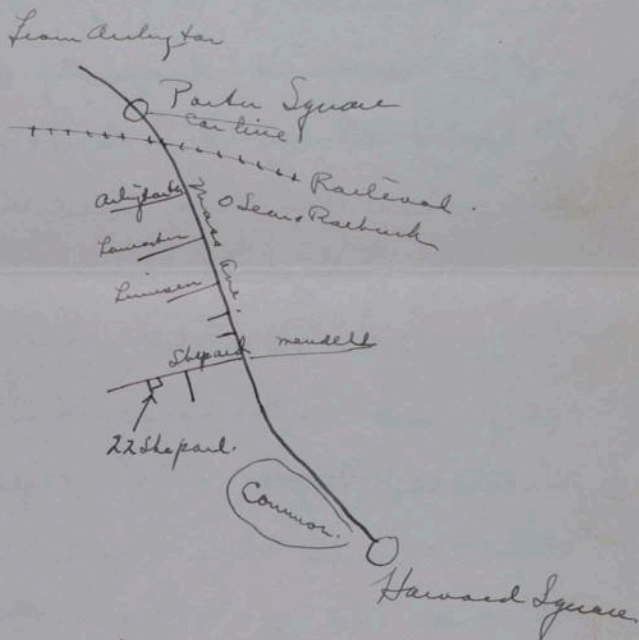 From Arlington
Porter Square
Car line
Railroad.
Arlington
Mass Ave.
Sears Roebuck
Lancaster
Linnean
Shepard
mendell
22 Shepard.
Common.
Harvard Square.